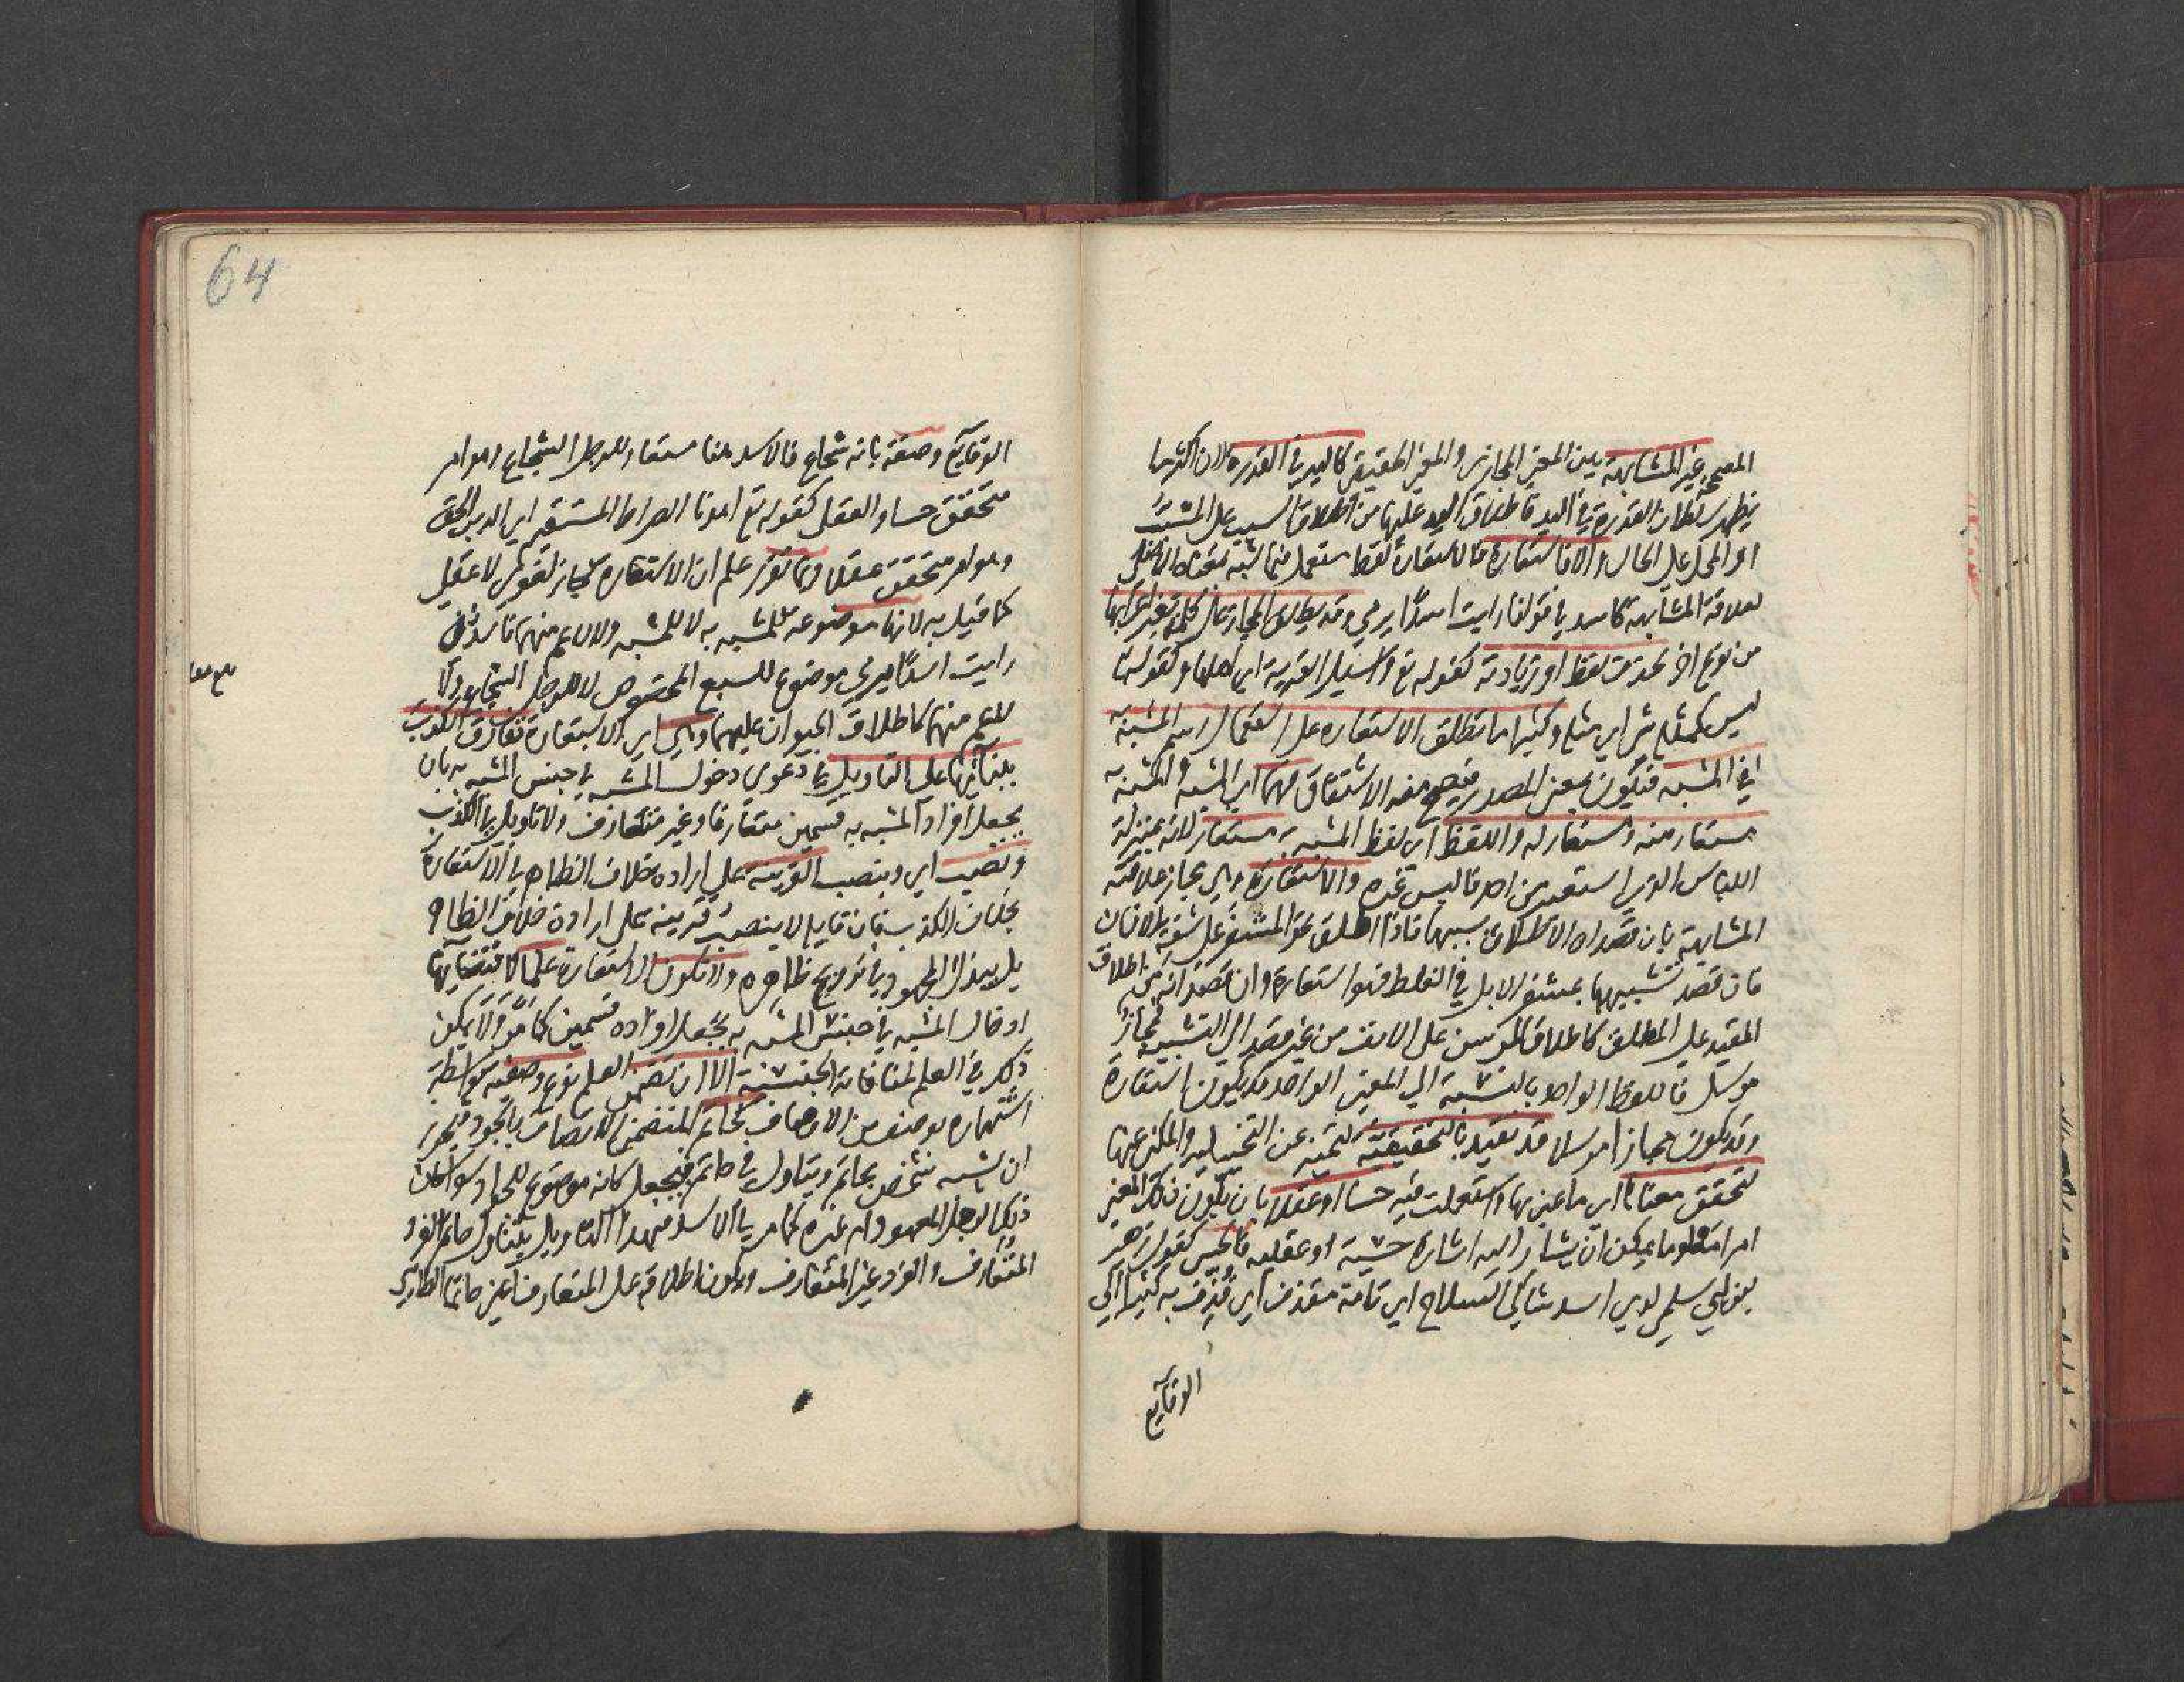 المصححة غير المشابهة بين المعنى المجازي والمعنى الحقيقي كاليد في القدرة لان اكثر ما
يظهر سلطان القدرة في اليد فاطلاق اليد عليها من اطلاق السبب على المسبب
او المحل على الحال والا فاستعارة فالاستعارة لفظ مستعمل فيما شبه بمعناه الاصلي
لعلاقة المشابهة كاسد في قولنا رايت اسدا يرمي وقد يطلق المجاز على كلمة تغير اعرابها
من نوع اخر بحذف لفظ او زيادته كقوله تع واسيل القرية اي اهلها وكقوله تع
ليس كمثله شي اي مثله وكثيرا ما تطلق الاستعارة على استعمال اسم المشبه به
في المشبه فيكون بمعنى المصدر فيصح منه الاشتقاق فهما اي المشبه والمشبه به
مستعار منه ومستعار له واللفظ اي لفظ المشبه به مستعار لانه بمنزلة
اللباس الذي استعير من احد فالبس غيره والاستعارة وهي مجاز علاقته
المشابهة بان قصد ان الاطلاق بسببها فاذا اطلق نحو المشفر على شفة الانسان
فان قصد تشبيهها بمشفر الابل في الغلظ فهو استعارة وان قصد انه من اطلاق
المقيد على المطلق كاطلاق المرسن على الانف من غير قصد الى التشبيه فمجاز
مرسل فاللفظ الواحد بالنسبة الى المعنى الواحد قد يكون استعارة
وقد يكون مجازا مرسلا قد تقيد بالتحقيقية لتميز عن التخييلية والمكني عنها
لتحقق معناها اي ما عني بها واستعملت فيه حسا او عقلا بان يكون ذلك المعنى
امرا معلوما يمكن ان يشار اليه اشارة حسية او عقلية فالحسي كقول زهير
بن ابي سلمى لدي اسد شاكي السلاح اي تامة مقذف اي قذف به كثيرا الى
الوقايع
64
الوقايع وصفة بانه شجاع فالاسد هنا مستعار للرجل الشجاع وهو امر
متحقق حسا والعقل كقوله تع اهدنا الصراط المستقيم اي الدين الحق
وهو امر متحقق عقلا وبما تقرر علم ان الاستعارة مجاز لغوي لا عقلي
كما قيل به لانها موضوعة للمشبه به لا للمشبه ولا لاعم منهما فاسد في
رايت اسدا يرمي موضوع للسبع المخصوص لا للرجل الشجاع ولا
للاعم منهما كاطلاق الحيوان عليهما وهي اي الاستعارة تفارق الكذب
ببنائها على التاويل في دعوى دخول المشبه في جنس المشبه به بان
يجعل افراد المشبه به قسمين متعارفا وغير متعارف ولا تاويل في الكذب
ونصب اي وبنصب القرينة على ارادة خلاف الظاهر في الاستعارة
بخلاف الكذب فان قايله لا ينصب قرينة على ارادة خلاف الظاهر
بل يبذل المجهود في ترويج ظاهره ولا تكون الاستعارة علما لاقتضايها
ادخال المشبه في جنس المشبه به بجعل افراده قسمين كما مر ولا يمكن
ذلك في العلم لمنافاته الجنسية الا ان تضمن العلم نوع وصفية بواسطة
اشتهاره بوصف من الاوصاف كحاتم المتضمن الاتصاف بالجود فيجوز
ان يشبه شخص بحاتم ويتاول في حاتم فيجعل كانه موضوع للجواد سوا كان
ذلك الرجل المعهود ام غيره كما مر في الاسد فبهذا التاويل يتناول حاتم الفرد
المتعارف والفرد غير المتعارف ويكون اطلاقه على المتعارف اعني حاتما الطايي